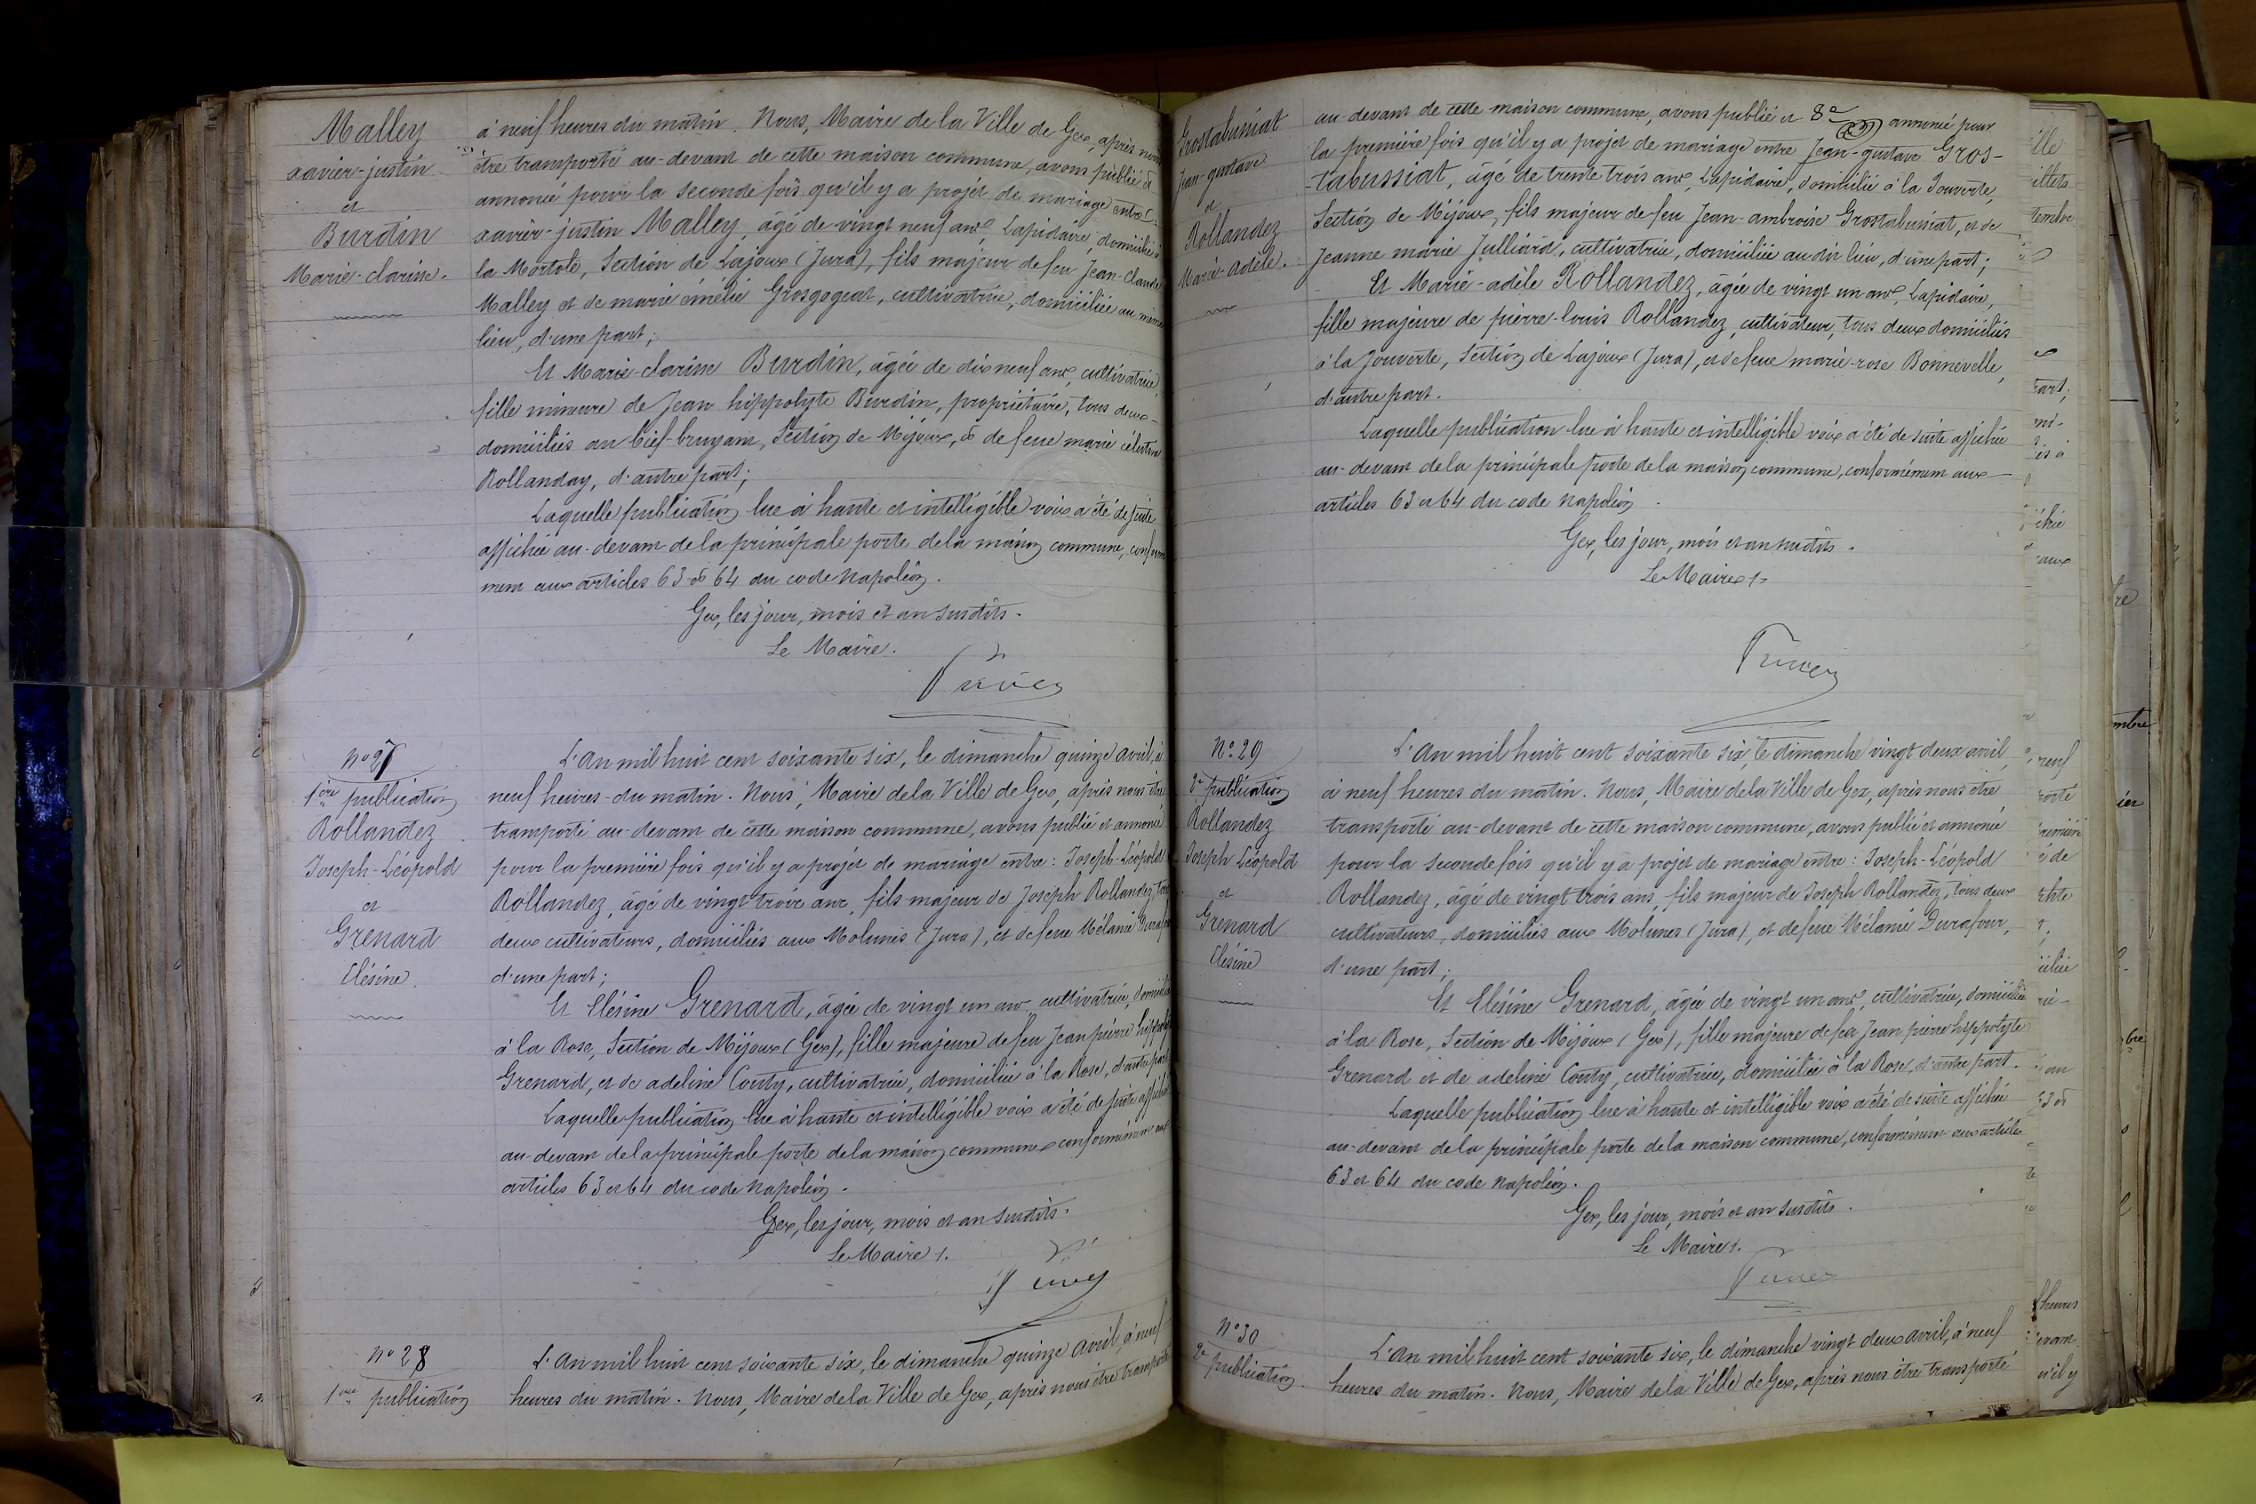 Malley
xavier-justin
et
Burdin
Marie-clarisse.
à neuf heures du matin. Nous, Maire de la Ville de Gex, après nous
être transporté au-devant de cette maison commune, avons publié et
annoncé pour la seconde fois qu'il y a projet de mariage entre
xavier-justin Malley, âgé de vingt neuf ans, Lapidaire, domicilié à
la Mortote, Section de Lajoux (Jura), fils majeur de feu Jean-Claude
Malley et de marie émélie Grosgogeat, cultivatrice, domiciliée au même
lieu, d'une part;
Et Marie-clarisse Burdin, âgée de dix neuf ans, cultivatrice,
fille mineure de Jean hippolyte Burdin, propriétaire, tous deux
domiciliés au bief-bruyant, Section de Mijoux, et de feue marie célestine
Rollanday, d'autre part;
Laquelle publication lue à haute et intelligible voix a été de suite
affichée au-devant de la principale porte de la maison commune, conformé
ment aux articles 63 et 64 du code Napoléon.
Gex, les jour, mois et an susdits.
Le Maire.
N° 27
1ère publication
Rollandez
Joseph-Léopold
et
Grenard
Elésine.
L'An mil huit cent soixante six, le dimanche quinze avril, à
neuf heures du matin. Nous, Maire de la Ville de Gex, après nous être
transporté au-devant de cette maison commune, avons publié et annoncé
pour la première fois qu'il y a projet de mariage entre: Joseph-Léopold
Rollandez, âgé de vingt trois ans, fils majeur de Joseph Rollandez, tous
deux cultivateurs, domiciliés aux Molunes (Jura), et de feue Mélanie Durafour
d'une part;
Et Elésine Grenard, âgée de vingt un ans, cultivatrice, domiciliée
à la Rose, Section de Mijoux (Gex), fille majeure de feu Jean pierre hippolyte
Grenard, et de adeline Couty, cultivatrice, domiciliée à la Rose, d'autre part
Laquelle publication lue à haute et intelligible voix a été de suite affichée
au-devant de la principale porte de la maison commune conformément aux
articles 63 et 64 du code Napoléon.
Gex, les jour, mois et an susdits.
Le Maire.
N° 28
1ère publication
L'An mil huit cent soixante six, le dimanche quinze avril, à neuf
heures du matin. Nous, Maire de la Ville de Gex, après nous être transporté
Grostabussiat
Jean-gustave
et
Rollandez
Marie-Adèle.
au-devant de cette maison commune, avons publié et annoncé pour
la première fois qu'il y a projet de mariage entre Jean-gustave Gros-
-tabussiat, âgé de trente trois ans, Lapidaire, domicilié à la Jouverte,
Section de Mijoux, fils majeur de feu Jean-ambroise Grostabussiat, et de
Jeanne marie Julliard, cultivatrice, domiciliée au dit lieu, d'une part;
Et Marie-adèle Rollandez, âgée de vingt un ans, Lapidaire,
fille majeure de pierre-louis Rollandez, cultivateur, tous deux domiciliés
à la Jouverte, Section de Lajoux (Jura), et de feue marie-rose Bonneville,
d'autre part.
Laquelle publication lue à haute et intelligible voix a été de suite affichée
au-devant de la principale porte de la maison commune, conformément aux
articles 63 et 64 du code Napoléon.
Gex, les jour, mois et an susdits.
Le Maire.
N° 29
2e publication
Rollandez
Joseph Léopold
et
Grenard
Elésine
L'An mil huit cent soixante six, le dimanche vingt deux avril,
à neuf heures du matin. Nous, Maire de la Ville de Gex, après nous être
transporté au-devant de cette maison commune, avons publié et annoncé
pour la seconde fois qu'il y a projet de mariage entre: Joseph-Léopold
Rollandez, âgé de vingt trois ans, fils majeur de Joseph Rollandez, tous deux
cultivateurs, domiciliés aux Molunes (Jura), et de feue Mélanie Durafour,
d'une part;
Et Elésine Grenard, âgée de vingt un ans, cultivatrice, domiciliée
à la Rose, Section de Mijoux (Gex), fille majeure de feu Jean pierre hippolyte
Grenard et de adeline Couty, cultivatrice, domiciliée à la Rose, d'autre part.
Laquelle publication lue à haute et intelligible voix a été de suite affichée
au-devant de la principale porte de la maison commune, conformément aux articles
63 et 64 du code Napoléon.
Gex, les jour, mois et an susdits.
Le Maire.
N° 30
2e publication.
L'An mil huit cent soixante six, le dimanche vingt deux avril, à neuf
heures du matin. Nous, Maire de la Ville de Gex, après nous être transporté